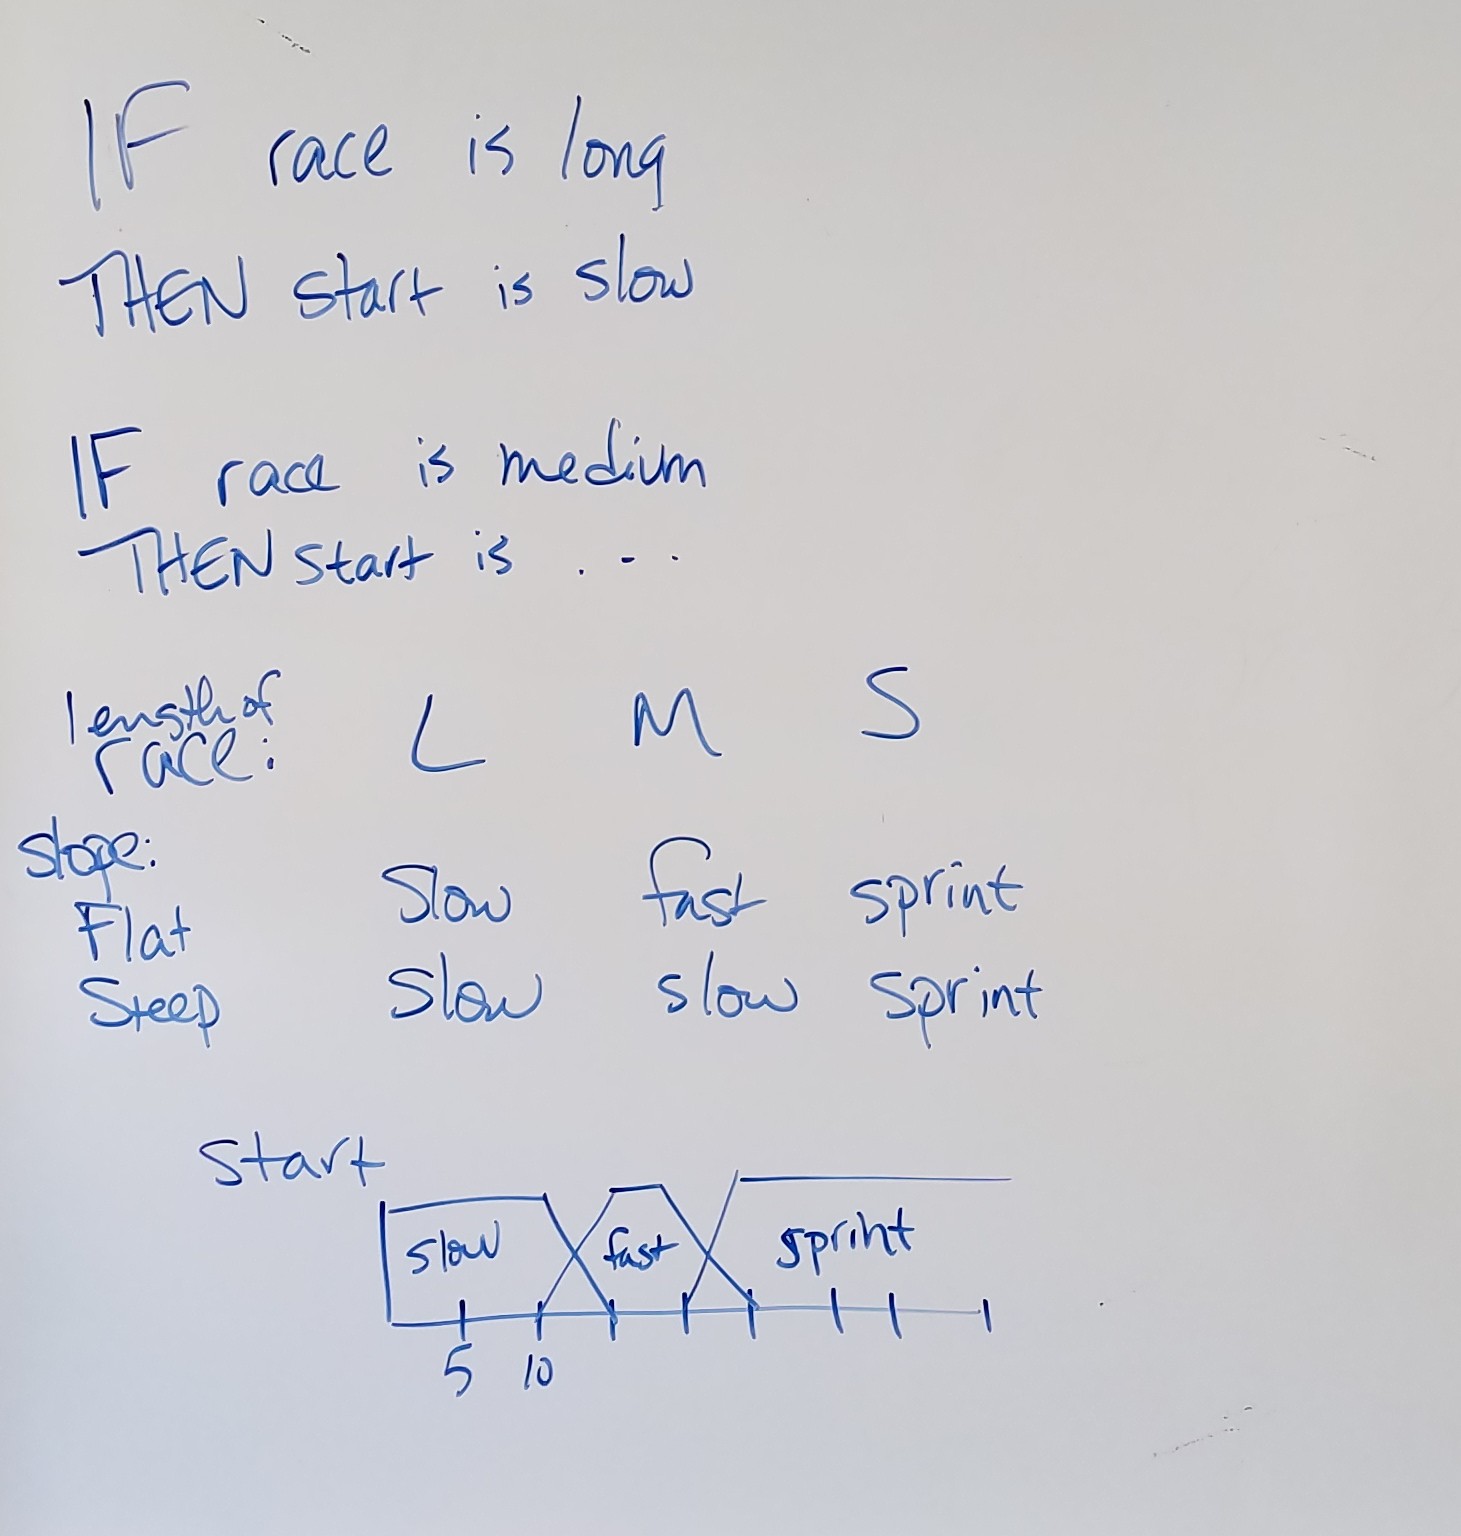 IF race is long
THEN start is slow
IF race is medium
THEN start is ...
length of
race: L M S
slope:
Flat Slow fast sprint
Steep Slow slow sprint
Start
slow fast sprint
5 10